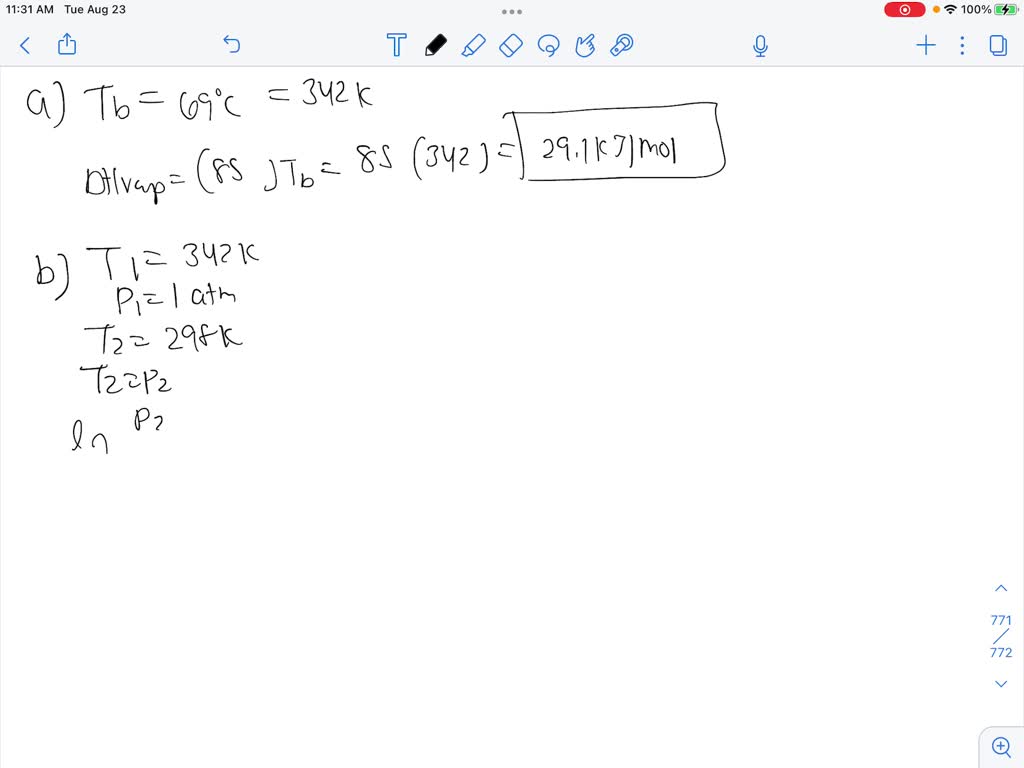 11:31 AM Tue Aug 23
100%
T
a) Tb = 69°C = 342K
ΔHvap = (85 ) Tb = 85 (342) = 29.1 KJ/mol
b) T1 = 342K
P1 = 1 atm
T2 = 298K
T2 = P2
ln P2
771
772